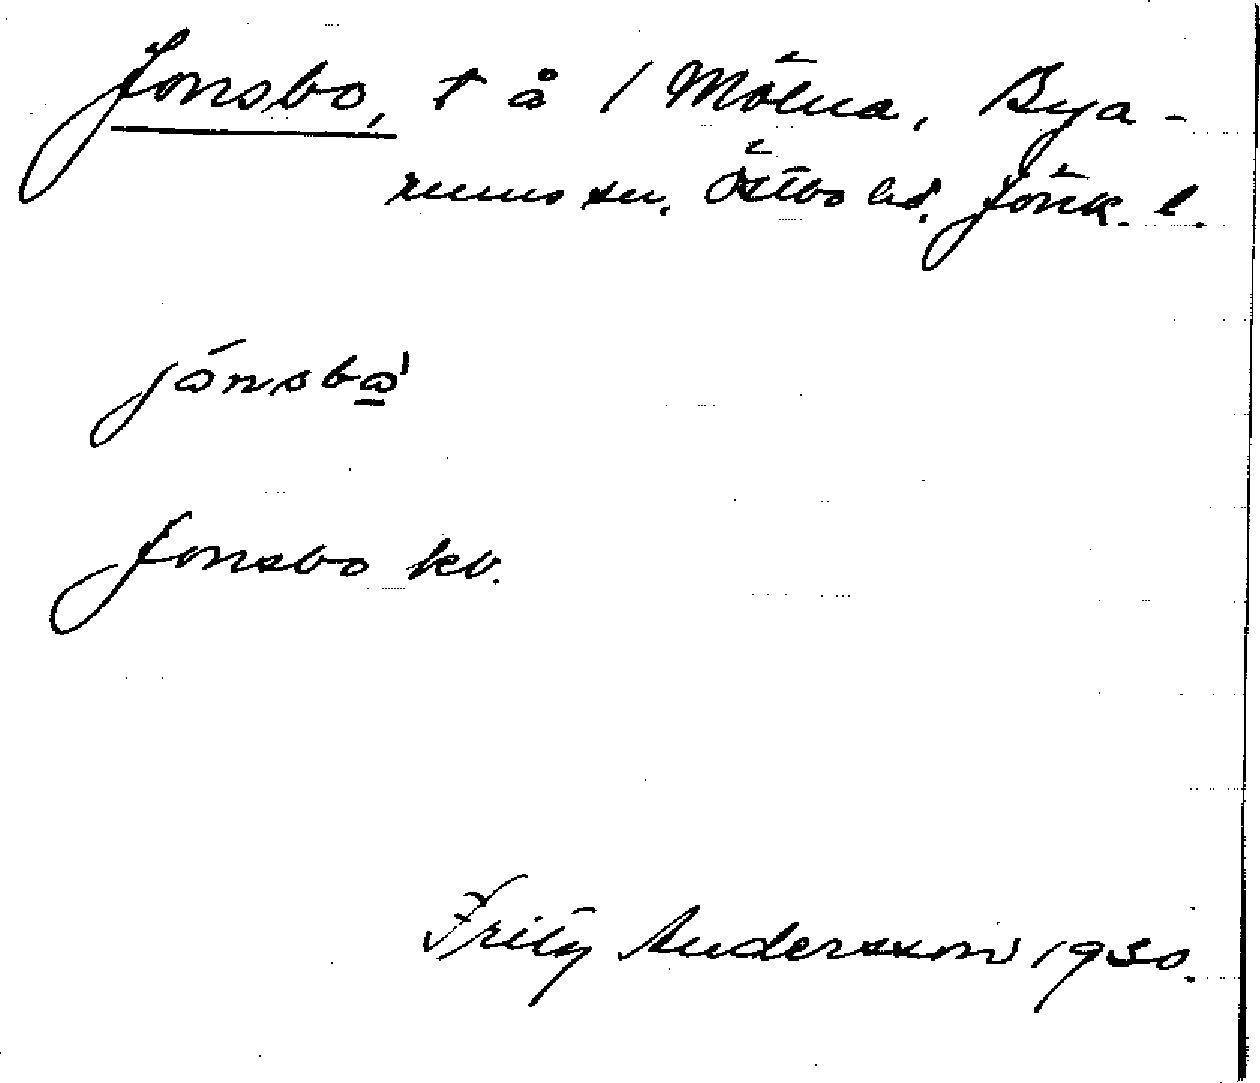 Jonsbo, t å 1 Mölna, Bya-
rums sn. Östbo hd. Jönk. l.
jónsbo̱
Jonsbo kv.
Fritz Andersson 1930.